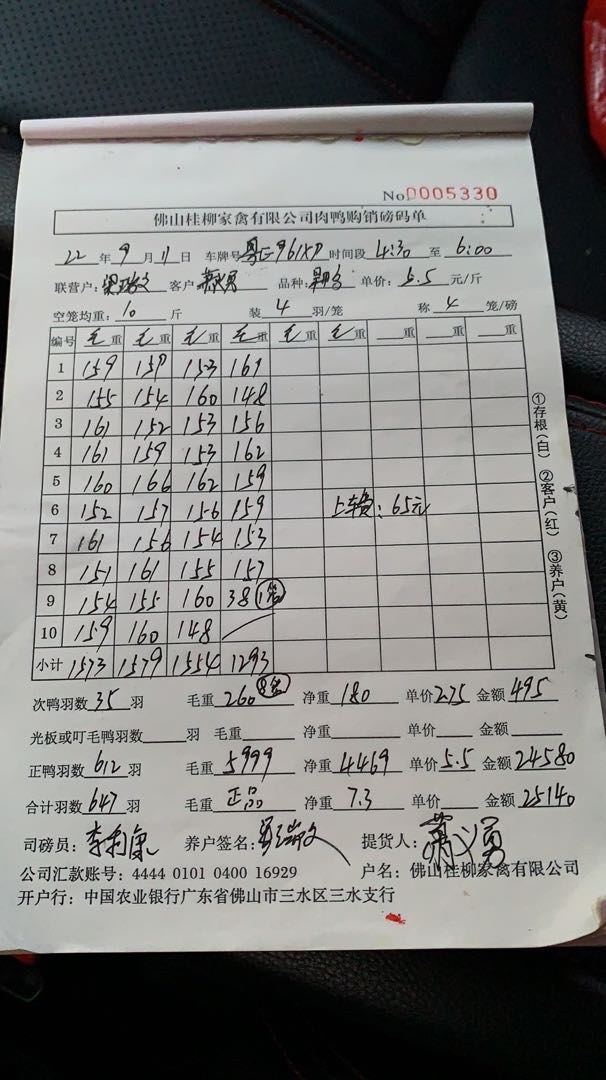 No. 0005330
佛山桂柳家禽有限公司肉鸭购销磅码单
22 年 9 月 11 日 车牌号 时间段 4:30 至 6:00
联营户: 客户 品种: 单价: 5.5 元/斤
空笼均重: 10 斤 装 4 羽/笼 称 4 笼/磅
编号 毛重 毛重 毛重 毛重 毛重 毛重 重 重 重
1 159 157 153 161
2 155 154 160 148
3 161 152 153 156
4 161 159 153 162
5 160 166 162 159
6 152 157 156 159 上车费:65元
7 161 156 154 153
8 151 161 155 157
9 154 155 160 38 1笼
10 159 160 148
小计 1573 1579 1554 1293
①存根(白) ②客户(红) ③养户(黄)
次鸭羽数 35 羽 毛重 260 8笼 净重 180 单价 2.75 金额 495
光板或叮毛鸭羽数 羽 毛重 净重 单价 金额
正鸭羽数 612 羽 毛重 5999 净重 4469 单价 5.5 金额 24580
合计羽数 647 羽 毛重 正品 净重 7.3 单价 金额 25140
司磅员: 养户签名: 提货人: 萧义勇
公司汇款账号: 4444 0101 0400 16929 户名: 佛山桂柳家禽有限公司
开户行: 中国农业银行广东省佛山市三水区三水支行